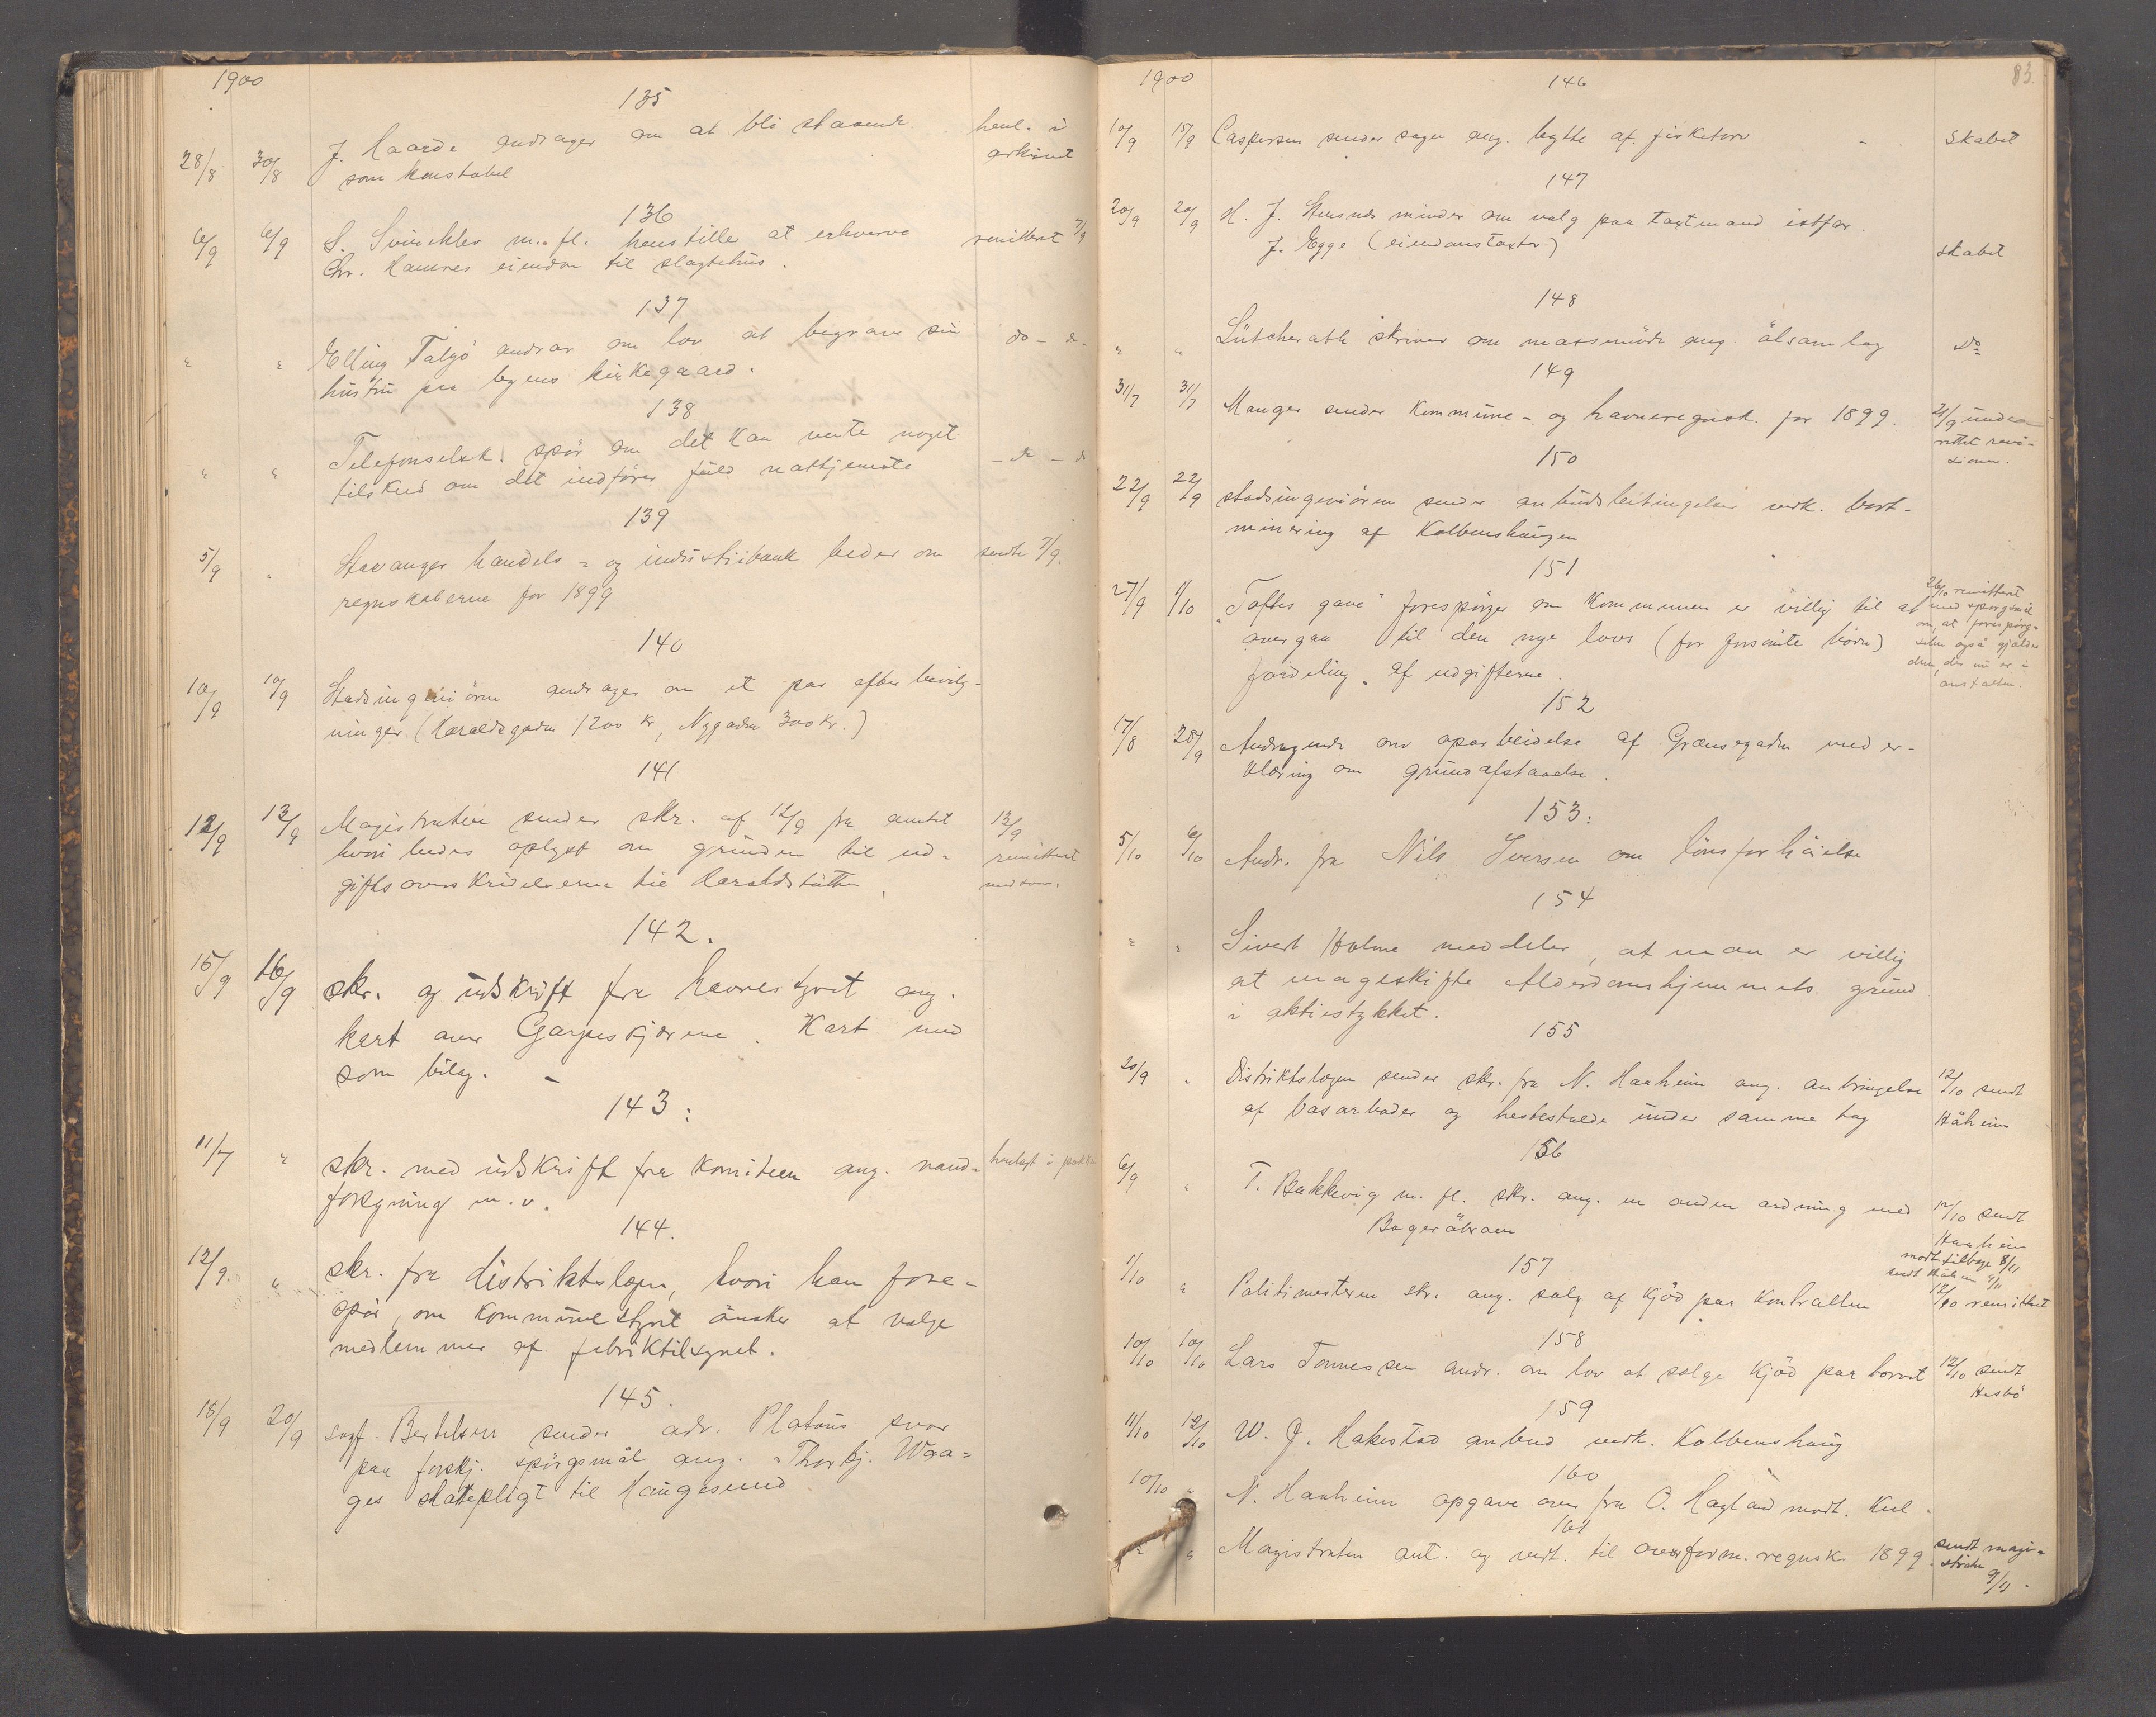 1900
135
28/8 30/8 J. Haarde andrager om at bli staaende henl. i
som konstabel arkivet
136
6/9 6/9 S. Svinckler m. fl. henstiller at erhverve remittert 7/9
Chr. Hannes eiendom til slagtehus.
137
" " Elling Talgö andrar om lov at begrave sin do - do
hustru paa byens kirkegaard.
138
" " Telefonselsk. spör om det kan vente noget - do - do
tilskud om det indförer fuld nattjeneste
139
5/9 " Stavanger handels- og industribank beder om sendt 7/9.
regnskaberne for 1899
140
10/9 10/9 Stadsingeniören andrager om et par efterbevilg-
ninger (Haraldsgaden 1200 kr, Nygaden 300 kr.)
141
12/9 13/9 Magistraten sender skr. af 12/9 fra amtet 13/9
hvori bedes oplyst om grunden til ud- remittert
giftsoverskridelserne til Haraldstötten med svar.
142.
15/9 16/9 skr. og udskrift fra havnestyret ang.
kart over Garpeskjærene. Kart med
som bilag. -
143:
11/7 " skr. med udskrift fra komiteen ang. vand- henlagt i pakke
forsyning m. v.
144.
12/9. " skr. fra distriktslægen, hvori han fore-
spör, om kommunestyret önsker at vælge
medlemmer af fabriktilsynet.
145.
18/9 20/9 sagf. Bertelsen sender adv. Platous svar
paa forskj. spörgsmål ang. Thorbj. Waa-
ges skattepligt til Haugesund
1900 83.
146
10/9 15/9 Caspersen sender sagen ang. bytte af fisketorv skabet
147
20/9 20/9 H. J. Stensnes minder om valg paa taxtmand istfor.
J. Egge (eiendomstaxter) skabet
148
" " Lütcherath skriver om massemöde ang. ölsamlag do
149
31/7 31/7 Manger sender kommune- og havneregnsk. for 1899. 21/9 under-
rettet revi-
sionen.
150
22/9 22/9 stadsingeniören sender anbudsbetingelser vedk. bort-
minering af Kolbenshaugen
151
27/9 1/10 "Toftes gave" forespörger om kommunen er villig til at 26/10 remittert
med spörgsmål
overgaa til den nye lovs (for forsömte börn) om, at forespörg-
selen også gjælder
fordeling af udgifterne. dem, der nu er i
anstalten.
152
17/8 28/9 Andragende om oparbeidelse af Grænsegaden med er-
klæring om grundafstaaelse.
153:
5/10 6/10 Andr. fra Nils Iversen om lönsforhöielse
154
" " Sivert Holme meddeler, at man er villig
at mageskifte Alderdomshjemmets grund
i aktiestykket.
155
20/9 " Distriktslægen sender skr. fra N. Haaheim ang. anbringelse 12/10 sendt
af basarboder og hestestalde under samme tag Håheim
156
6/9 " T. Bakkevig m. fl. skr. ang. en anden ordning med 12/10 sendt
Bageråbraen Haaheim
modt. tilbage 8/11
sendt Håheim 9/11
157
1/10 " Politimesteren skr. ang. salg af kjöd paa kontrollen 12/10 remittert
158
10/10 10/10 Lars Tonnessen andr. om lov at sælge kjöd paa torvet 12/10 sendt
Husbö
159
11/10 12/10 W. J. Hakestad anbud vedk. Kolbenshaug
160
10/10 " N. Haaheim opgave over fra O. Hagland modt. kul.
161
" " Magistraten ant. og vedt. til overform. regnsk. 1899. sendt magi-
straten
9/11.